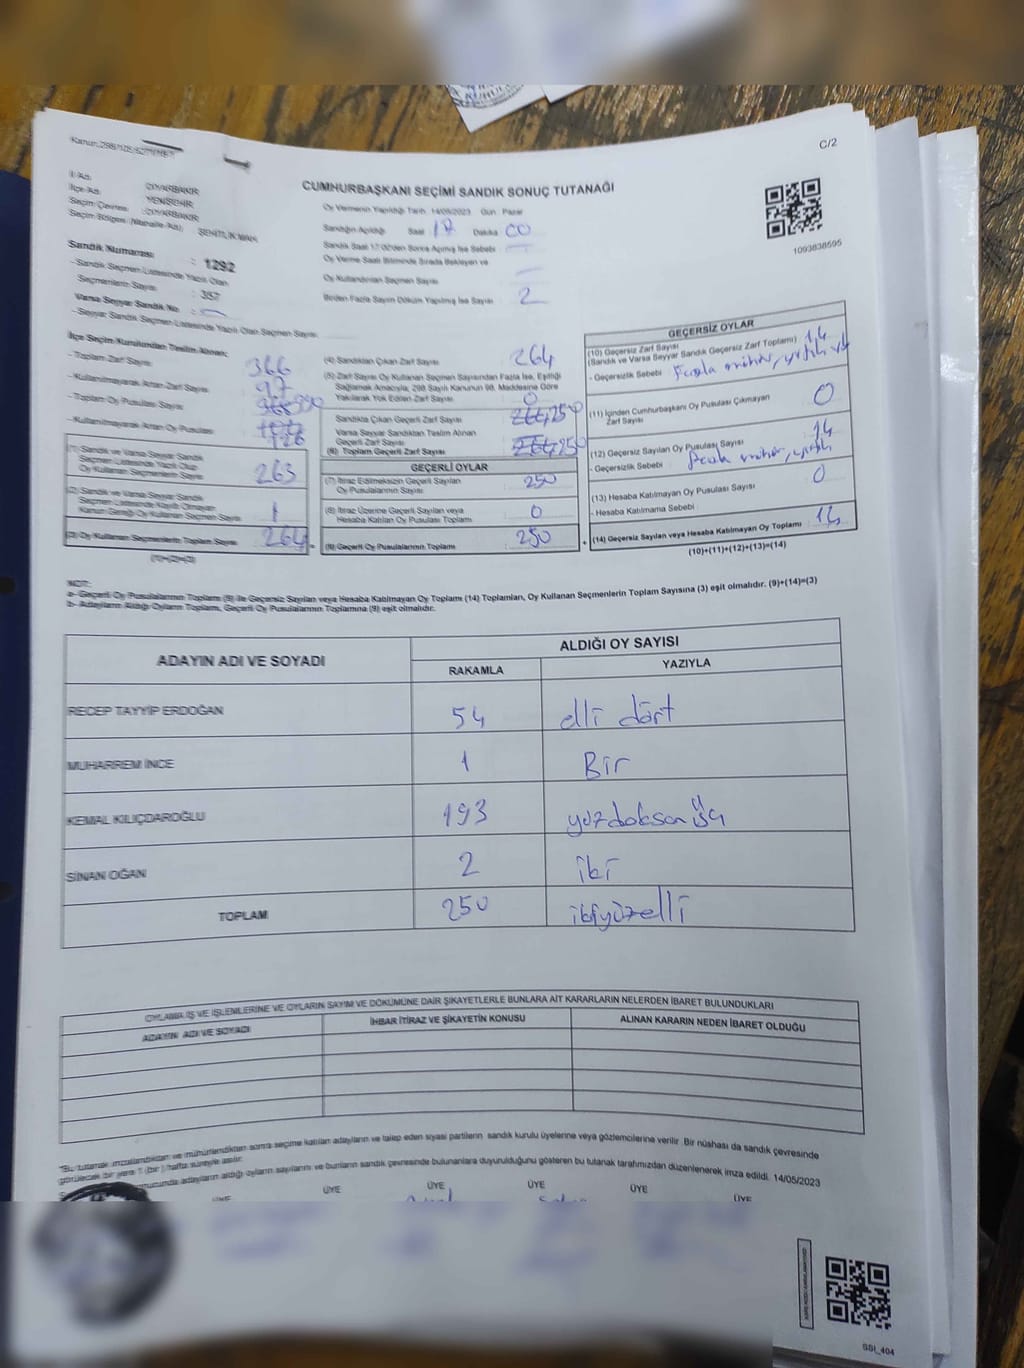 C/2
CUMHURBAŞKANI SEÇİMİ SANDIK SONUÇ TUTANAĞI
1093838595
İl Adı DİYARBAKIR
İlçe Adı YENİŞEHİR
Seçim Çevresi DİYARBAKIR
Seçim Bölgesi (Mahalle Adı) ŞEHİTLİK MAH.
Sandık Numarası : 1292
- Sandık Seçmen Listesinde Yazılı Olan
Seçmenlerin Sayısı : 357
Varsa Seyyar Sandık No :
- Seyyar Sandık Seçmen Listesinde Yazılı Olan Seçmen Sayısı
Oy Vermenin Yapıldığı Tarih 14/05/2023 Gün Pazar
Sandığın Açıldığı Saat 17 Dakika 00
Sandık Saat 17.00'den Sonra Açılmış İse Sebebi
Oy Verme Saati Bitiminde Sırada Bekleyen ve
Oy Kullandırılan Seçmen Sayısı
Birden Fazla Sayım Döküm Yapılmış İse Sayısı 2
İlçe Seçim Kurulundan Teslim Alınan;
- Toplam Zarf Sayısı 366
- Kullanılmayarak Artan Zarf Sayısı 97
- Toplam Oy Pusulası Sayısı
- Kullanılmayarak Artan Oy Pusulası 126
(1) Sandık ve Varsa Seyyar Sandık
Seçmen Listesinde Yazılı Olup
Oy Kullanan Seçmenlerin Sayısı 263
(2) Sandık ve Varsa Seyyar Sandık
Seçmen Listesinde Kayıtlı Olmayan
Kanun Gereği Oy Kullanan Seçmen Sayısı 1
(3) Oy Kullanan Seçmenlerin Toplam Sayısı 264
(1)+(2)=(3)
(4) Sandıktan Çıkan Zarf Sayısı 264
(5) Zarf Sayısı Oy Kullanan Seçmen Sayısından Fazla İse, Eşitliği
Sağlamak Amacıyla, 298 Sayılı Kanunun 98. Maddesine Göre
Yakılarak Yok Edilen Zarf Sayısı 0
Sandıkta Çıkan Geçerli Zarf Sayısı 264 250
Varsa Seyyar Sandıktan Teslim Alınan
Geçerli Zarf Sayısı
(6) Toplam Geçerli Zarf Sayısı 264 250
GEÇERLİ OYLAR
(7) İtiraz Edilmeksizin Geçerli Sayılan
Oy Pusulalarının Sayısı 250
(8) İtiraz Üzerine Geçerli Sayılan veya
Hesaba Katılan Oy Pusulası Toplamı 0
(9) Geçerli Oy Pusulalarının Toplamı 250
GEÇERSİZ OYLAR
(10) Geçersiz Zarf Sayısı
(Sandık ve Varsa Seyyar Sandık Geçersiz Zarf Toplamı) 14
- Geçersizlik Sebebi : Fazla mühür, yırtık
(11) İçinden Cumhurbaşkanı Oy Pusulası Çıkmayan
Zarf Sayısı 0
(12) Geçersiz Sayılan Oy Pusulası Sayısı 14
- Geçersizlik Sebebi fazla mühür, yırtık
(13) Hesaba Katılmayan Oy Pusulası Sayısı 0
- Hesaba Katılmama Sebebi
(14) Geçersiz Sayılan veya Hesaba Katılmayan Oy Toplamı 14
(10)+(11)+(12)+(13)=(14)
NOT:
a- Geçerli Oy Pusulalarının Toplamı (9) ile Geçersiz Sayılan veya Hesaba Katılmayan Oy Toplamı (14) Toplamları, Oy Kullanan Seçmenlerin Toplam Sayısına (3) eşit olmalıdır. (9)+(14)=(3)
b- Adayların Aldığı Oyların Toplamı, Geçerli Oy Pusulalarının Toplamına (9) eşit olmalıdır.
ADAYIN ADI VE SOYADI ALDIĞI OY SAYISI
RAKAMLA YAZIYLA
RECEP TAYYİP ERDOĞAN 54 elli dört
MUHARREM İNCE 1 Bir
KEMAL KILIÇDAROĞLU 193 yüzdoksan üç
SİNAN OĞAN 2 iki
TOPLAM 250 ikiyüzelli
OYLAMA İŞ VE İŞLEMLERİNE VE OYLARIN SAYIM VE DÖKÜMÜNE DAİR ŞİKAYETLERLE BUNLARA AİT KARARLARIN NELERDEN İBARET BULUNDUKLARI
ADAYIN ADI VE SOYADI İHBAR İTİRAZ VE ŞİKAYETİN KONUSU ALINAN KARARIN NEDEN İBARET OLDUĞU
"Bu tutanak imzalandıktan ve mühürlendikten sonra seçime katılan adayların ve talep eden siyasi partilerin sandık kurulu üyelerine veya gözlemcilerine verilir. Bir nüshası da sandık çevresinde
görülecek bir yere 1 (bir) hafta süreyle asılır.
sonucunda adayların aldığı oyların sayılarını ve bunların sandık çevresinde bulunanlara duyurulduğunu gösteren bu tutanak tarafımızdan düzenlenerek imza edildi. 14/05/2023
ÜYE ÜYE ÜYE ÜYE ÜYE ÜYE
SSI_404